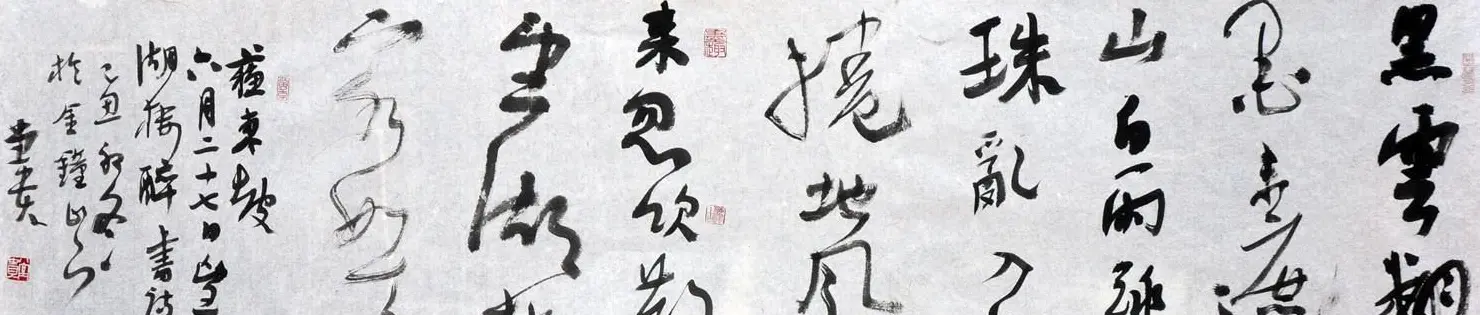 黑雲翻
墨未遮
山白雨跳
珠亂入
捲地風
來忽吹散
望湖樓
下水如天
蘇東坡
六月二十七日望
湖樓醉書詩
己丑初冬
於金鐘山下